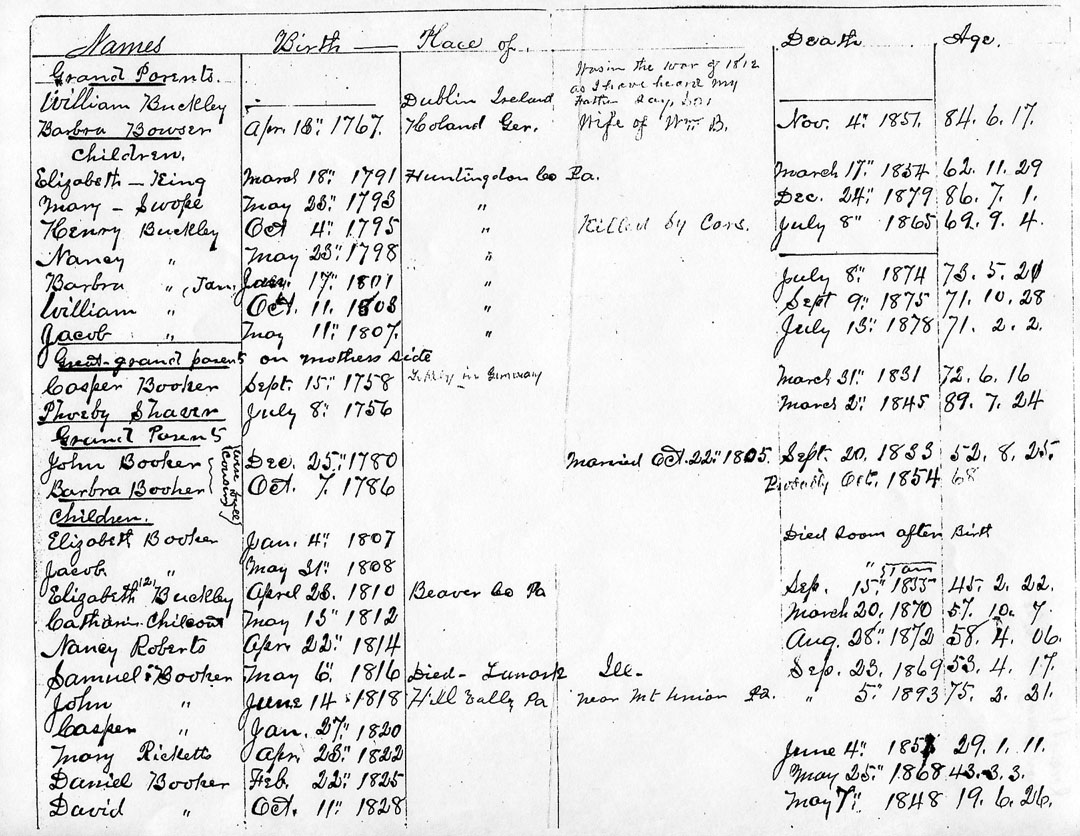 Names Birth — Place of. Death Age.
Grand Parents. Was in the war of 1812
as I have heard my
William Buckley — Dublin Ireland Father say, —
Barbra Bowser Apr. 18" 1767. Holand Ger. Wife of Wm B. Nov. 4" 1851. 84. 6. 17.
Children.
Elizabeth — King March 18" 1791 Huntingdon Co Pa. March 17" 1854 62. 11. 29
Mary — Swope May 23" 1793 " Dec. 24" 1879 86. 7. 1.
Henry Buckley Oct 4" 1795 " Killed by Cars. July 8" 1865 69. 9. 4.
Nancy " May 23" 1798 " —
Barbra " , Jan. 17" 1801 " July 8" 1874 73. 5. 21
William " Oct. 11. 1803 " Sept 9" 1875 71. 10. 28
Jacob " May 11" 1807. " July 13" 1878 71. 2. 2.
Great-grand parents on mothers side
Casper Booker Sept. 15" 1758 in Germany March 31" 1831 72. 6. 16
Phoeby Shaver July 8" 1756 March 2" 1845 89. 7. 24
Grand Parents
John Booker Dec. 25" 1780 Married Oct. 22" 1805. Sept. 20. 1833 52. 8. 25.
Barbra Booker Oct. 7. 1786 Probably Oct. 1854 68
were full cousins
Children.
Elizabeth Booker Jan. 4" 1807 Died soon after Birth
Jacob " May 31" 1808 "
Elizabeth (2) Buckley April 23" 1810 Beaver Co Pa Sep. 15" 1855 45. 2. 22.
Catharin Chilcout May 13" 1812 March 20, 1870 57. 10. 7
Nancy Roberts Apr. 22" 1814 Aug. 28" 1872 58. 4. 06.
Samuel Booker May 6" 1816 Died - Lanark Ill- Sep. 23. 1869 53. 4. 17.
John " June 14 1818 Hill Vally Pa near Mt Union Pa. " 5" 1893 75. 2. 21.
Casper " Jan. 27" 1820
Mary Ricketts Apr. 23" 1822 June 4" 29. 1. 11.
Daniel Booker Feb. 22" 1825 May 25" 1868 43. 3. 3.
David " Oct. 11" 1828 May 7" 1848 19. 6. 26.